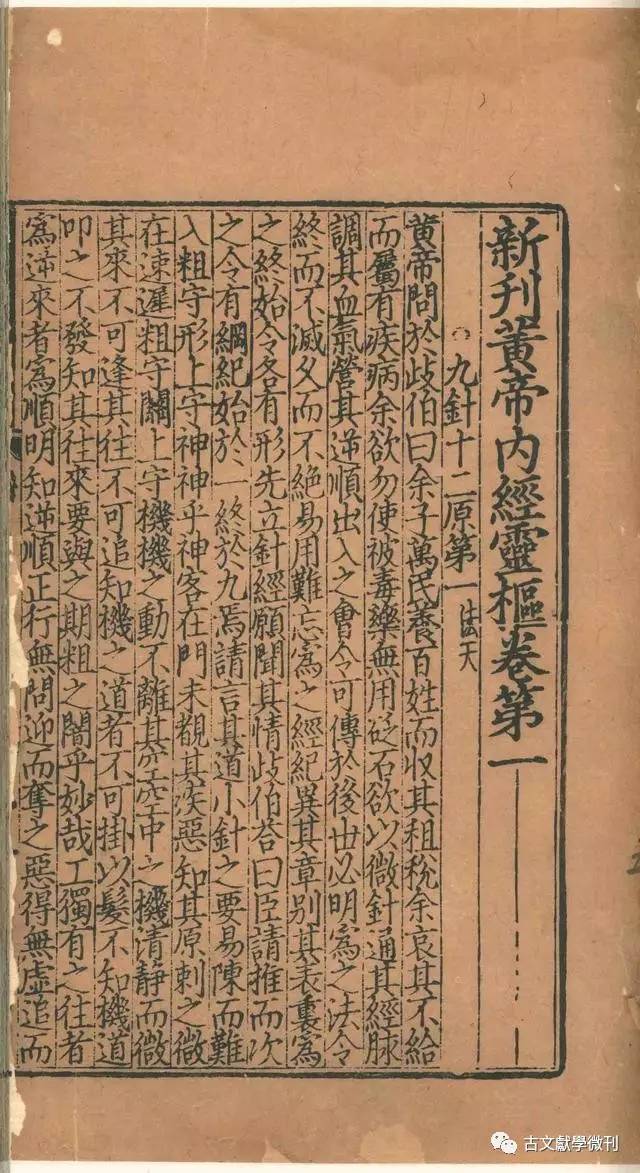 新刋黃帝内經靈樞卷第一
九針十二原第一 法天
黃帝問於歧伯曰余子萬民養百姓而收其租稅余哀其不給
而屬有疾病余欲勿使被毒藥無用砭石欲以微針通其經脉
調其血氣營其逆順出入之會令可傳於後世必明爲之法令
終而不滅久而不絕易用難忘爲之經紀異其章别其表裏爲
之終始令各有形先立針經願聞其情歧伯荅曰臣請推而次
之令有綱紀始於一終於九焉請言其道小針之要易陳而難
入粗守形上守神神乎神客在門未覩其疾惡知其原刺之微
在速遲粗守關上守機機之動不離其空空中之機清静而微
其來不可逢其往不可追知機之道者不可掛以髮不知機道
叩之不發知其往來要與之期粗之闇乎妙哉工獨有之往者
爲逆來者爲順明知逆順正行無問迎而奪之惡得無虛追而
古文獻學微刊